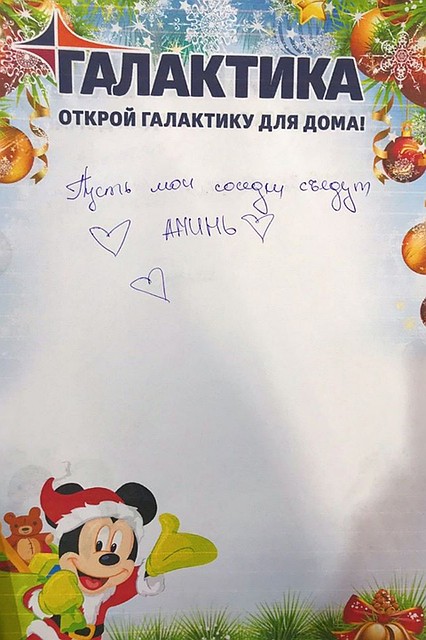 ГАЛАКТИКА
ОТКРОЙ ГАЛАКТИКУ ДЛЯ ДОМА!
Пусть мои соседи съедут
АМИНЬ